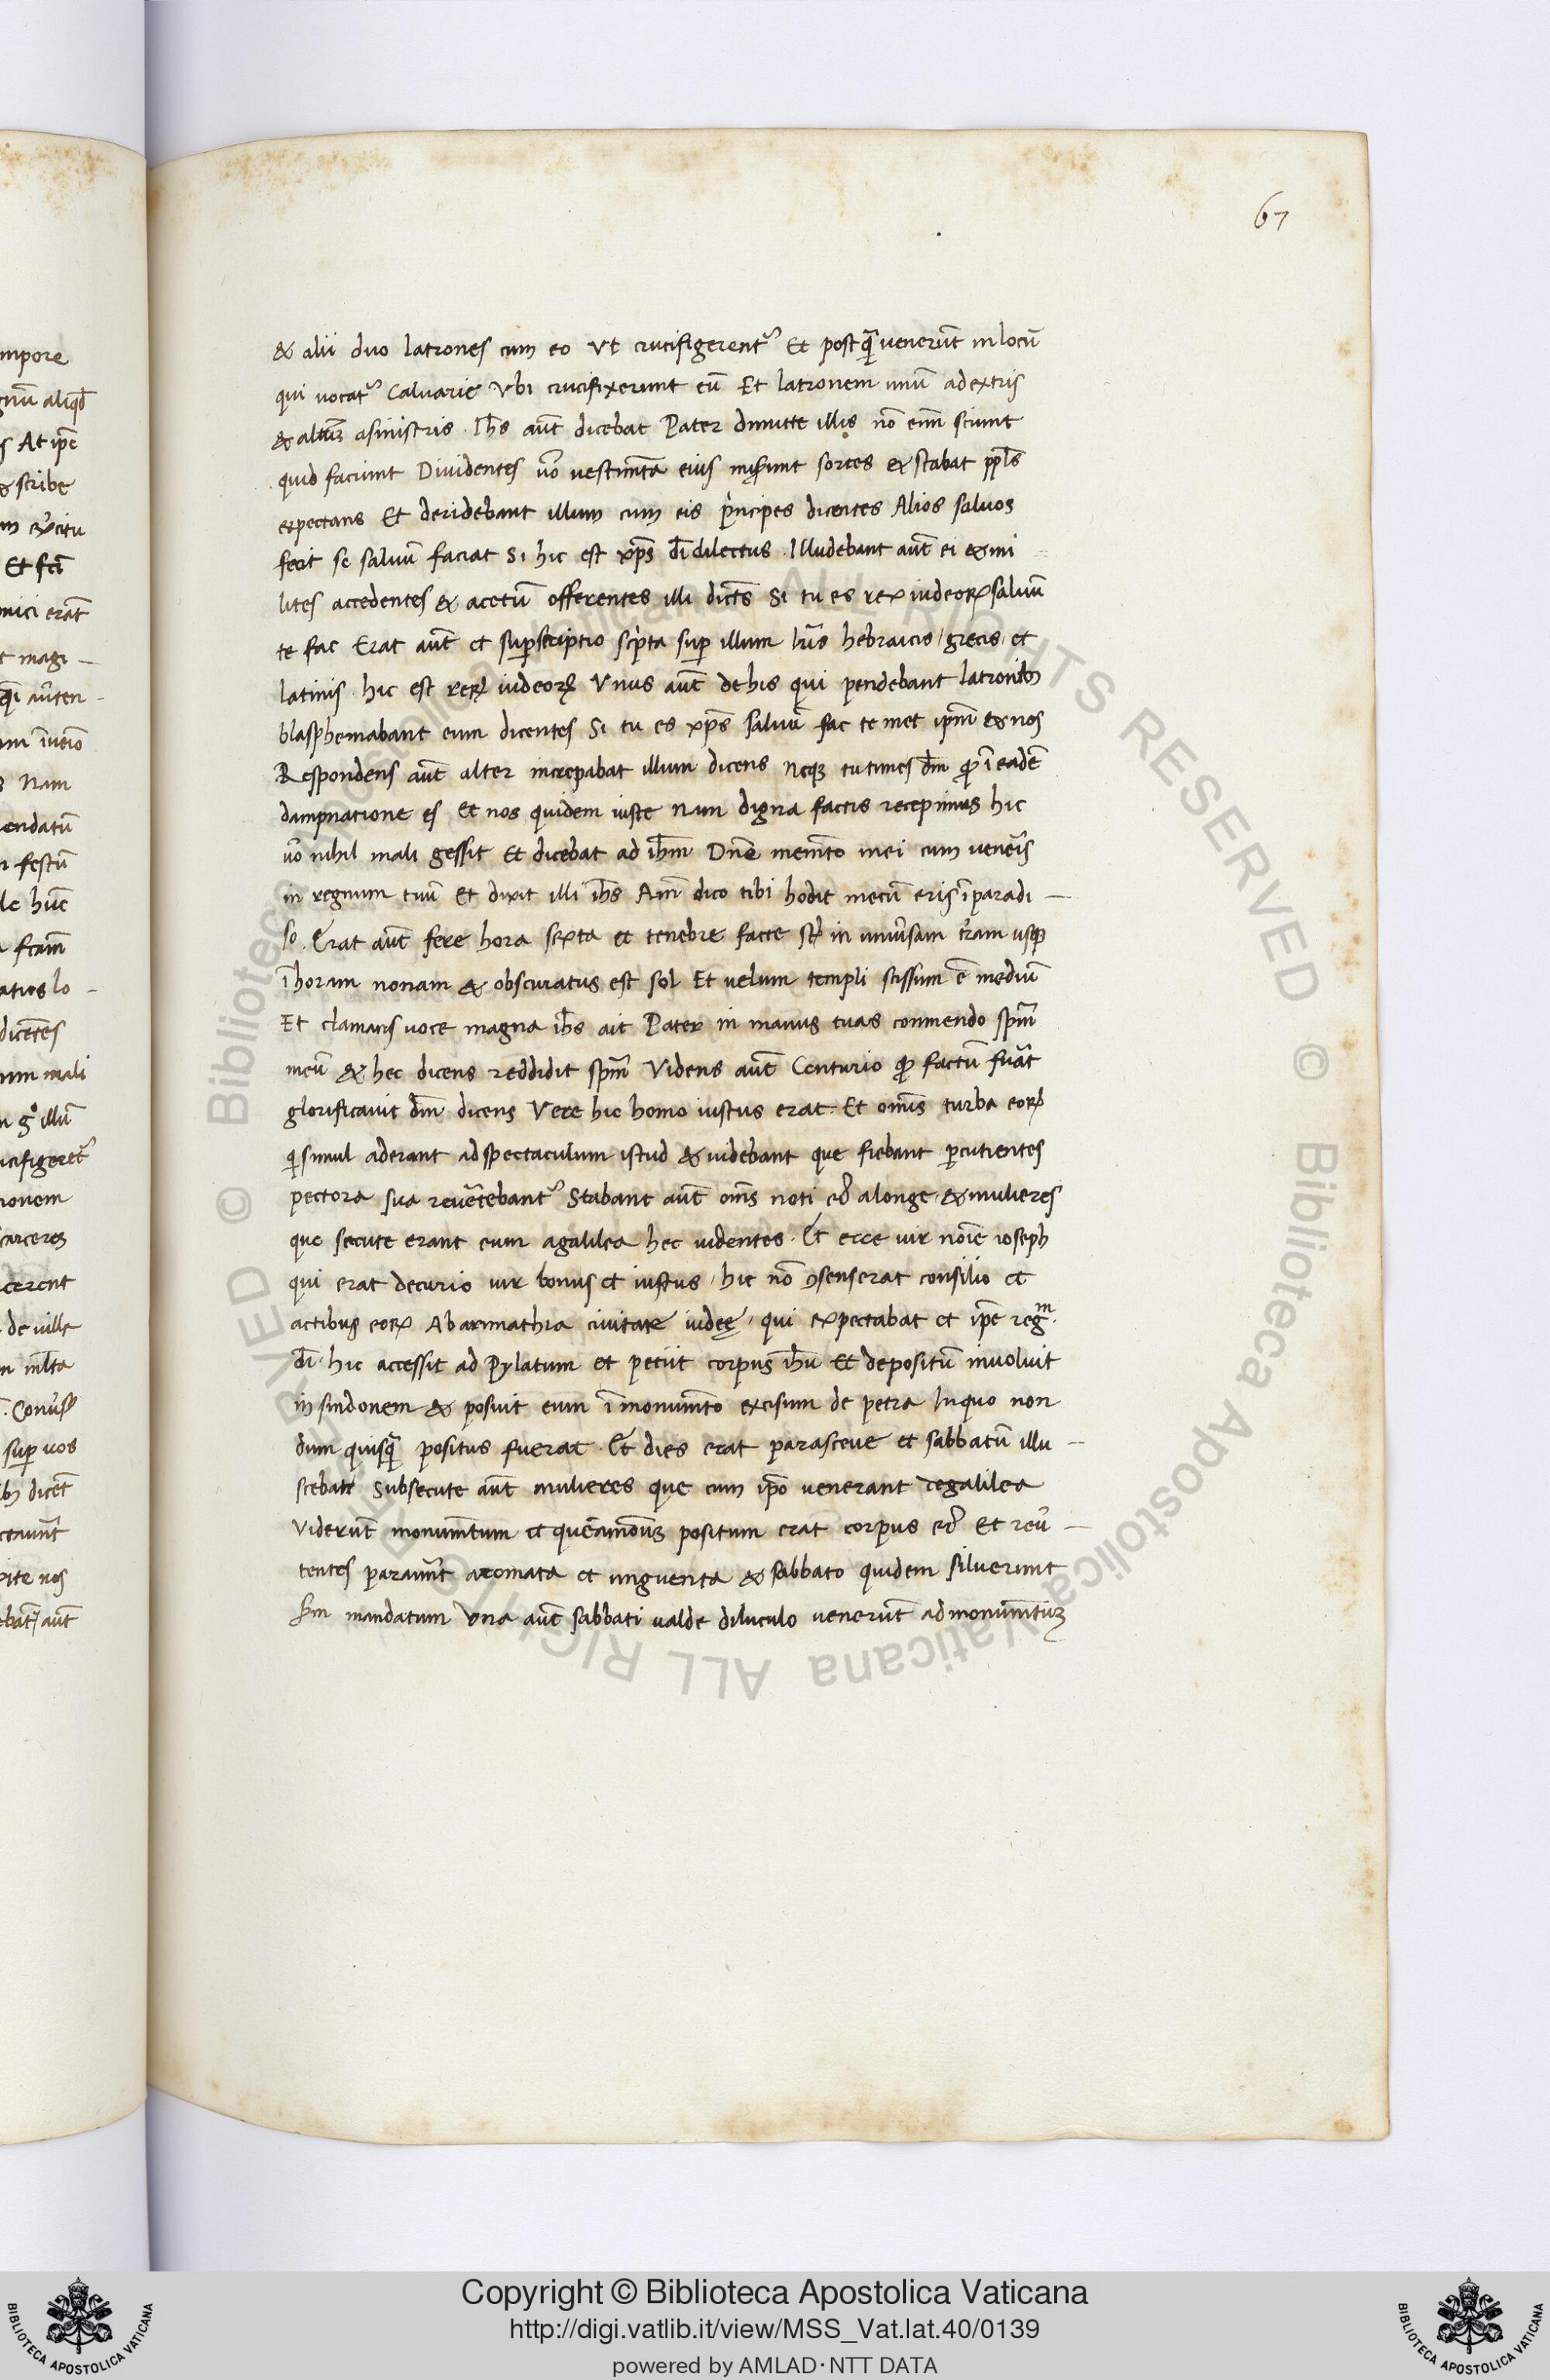 67
& alii duo latrones cum eo Vt crucifigerent᷑ Et postq̃ venerũt in locũ
qui vocat᷑ Caluarie Vbi crucifixerunt eũ Et latronem unũ adextris
& altũz asinistris . Ihs̃ aũt dicebat Pater dimitte illis nõ enĩ sciunt
quid faciunt Diuidentes ṽo vestimẽta eius miserunt sortes & stabat ppl̃s
expectans Et deridebant illum cum eis p̃ncipes dicentes Alios saluos
fecit se saluũ faciat Si hic est xp̃s dĩ dilectus . Illudebant aũt ei & mi
lites accedentes & acetũ offerentes illi dict̃s Si tu es rex iudeoꝝ saluũ
te fac Erat aũt et sup̃scriptio sc̃pta sup̃ illum lr̃is hebraicis / grecis / et
latinis . hic est rex iudeoꝝ Vnus aũt de his qui pendebant latronibꝫ
blasphemabant eum dicentes Si tu es xp̃s saluũ fac te met ipm̃ & nos
Respondens aũt alter increpabat illum dicens Neqꝫ tu times dm̃ ꝙ ĩ eadẽ
dampnatione es Et nos quidem iuste nam digna factis recepimus hic
ṽo nihil mali gessit Et dicebat ad ihm̃ Dnẽ memẽto mei cum veneris̃
in regnum tuũ Et dixit illi ihs̃ Amẽ dico tibi hodie mecũ eris ĩ paradi —
so . Erat aũt fere hora sexta et tenebre facte st̃ in uniũsam tr̃am usqꝫ
ĩ horam nonam & obscuratus est sol Et velum templi scissum ẽ mediũ
Et clamans voce magna ihs̃ ait Pater in manus tuas commendo spm̃
meũ & hec dicens reddidit spm̃ Videns aũt Centurio ꝙ factũ fũat
glorificauit dm̃ dicens Vere hic homo iustus erat . Et omĩs turba eoꝝ
qi simul aderant ad spectaculum istud & uidebant que fiebant p̱cutientes
pectora sua reũtebant᷑ Stabant aũt oms̃ noti eꝰ alonge . & mulieres
que secute erant eum agalilea hec uidentes . Et ecce uir noĩe ioseph
qui erat decurio uir bonus et iustus / hic nõ ꝯsenserat consilio et
actibus eoꝝ Abarimathia ciuitate iudeę / qui expectabat et ipẽ regᵐ.
dĩ . hic accessit ad Pylatum et petiit corpus ihũ Et depositũ inuoluit
in sindonem & posuit eum ĩ monumẽto excisum de petra In quo non
dum quisq̃ positus fuerat . Et dies erat parasceue et sabbatũ illu —
scebat Subsecute aũt mulieres que cum ipõ venerant degalilea
Viderũt monumẽtum et quẽamodũꝫ positum erat corpus eꝰ Et reũ —
tentes paraũnt aromata et unguenta & sabbato quidem siluerunt
scd̃m mandatum Vna aũt sabbati valde diluculo venerũt ad monumẽtuꝫ
Copyright © Biblioteca Apostolica Vaticana
http://digi.vatlib.it/view/MSS_Vat.lat.40/0139
powered by AMLAD·NTT DATA
BIBLIOTECA APOSTOLICA VATICANA
BIBLIOTECA APOSTOLICA VATICANA
© Biblioteca Apostolica Vaticana ALL RIGHTS RESERVED © Biblioteca Apostolica Vaticana ALL RIGHTS RESERVED